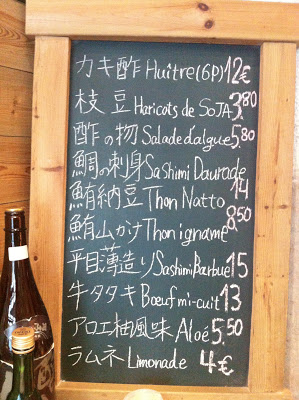 カキ酢 Huître(6P) 12€
枝豆 Haricots de SOJA 3,80
酢の物 Salade d'algue 5,80
鯛の刺身 Sashimi Daurade
鮪納豆 Thon Natto 14
鮪山かけ Thon igname 8,50
平目薄造り Sashimi Barbue 15
牛タタキ Bœuf mi-cuit 13
アロエ柚風味 Aloé 5,50
ラムネ Limonade 4€